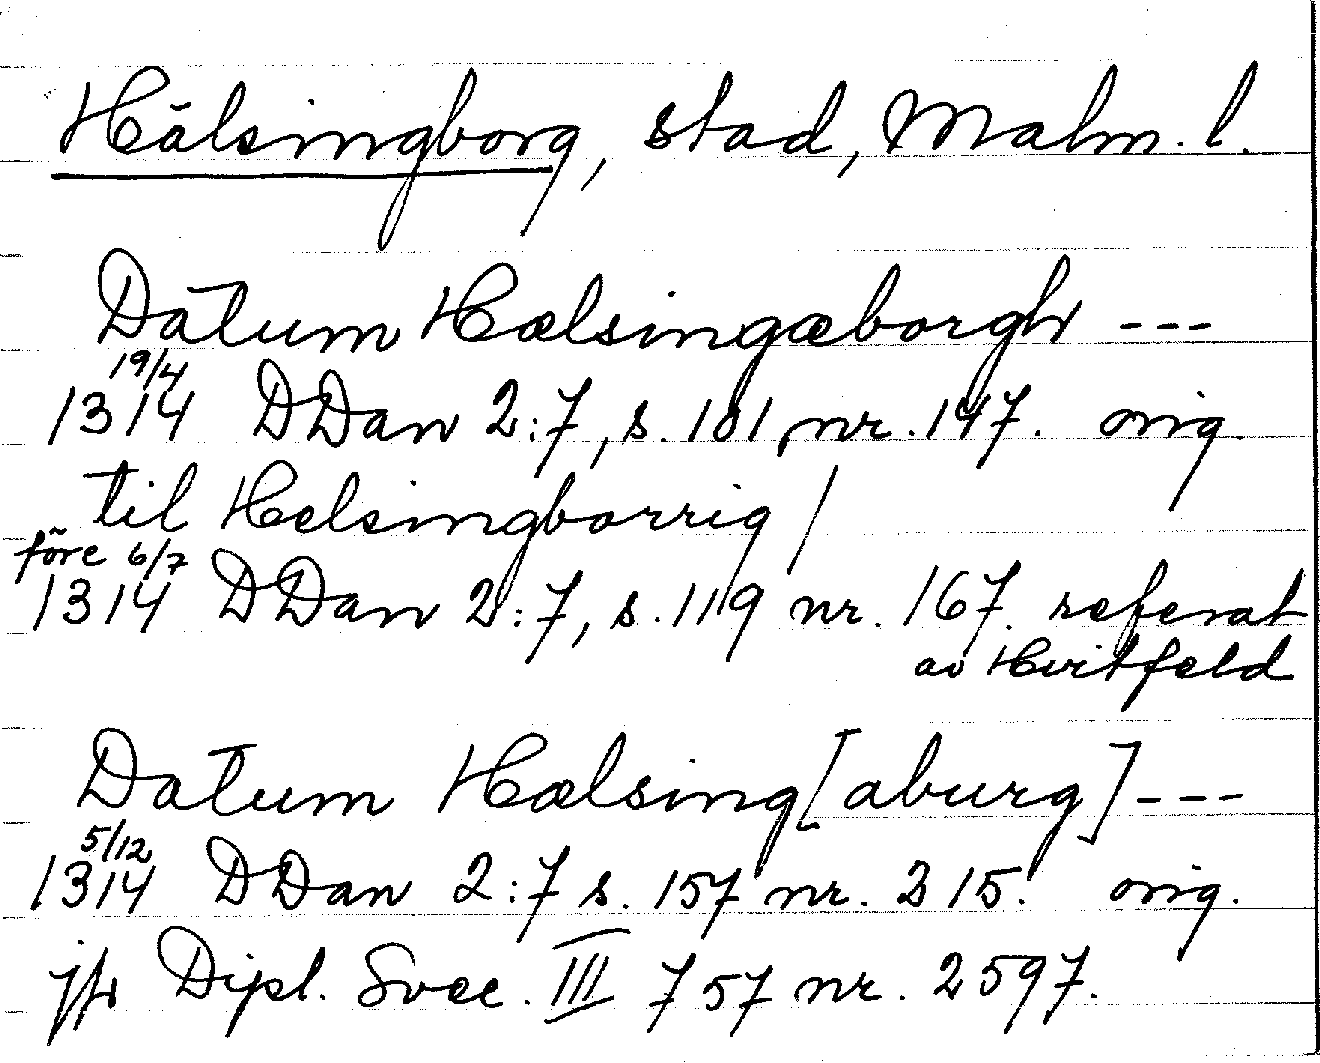 Hälsingborg, stad, Malm. l.
Datum Hælsingæborgh ---
19/4
1314 DDan 2:7, s. 101, nr. 147. orig.
til Helsingborrig /
före 6/7
1314 DDan 2:7, s. 119 nr. 167. referat
av Hvitfeld
Datum Hælsing[aburg] ---
5/12
1314 DDan 2:7 s. 157 nr. 215. orig.
jfr Dipl. Svec. III 757 nr. 2597.